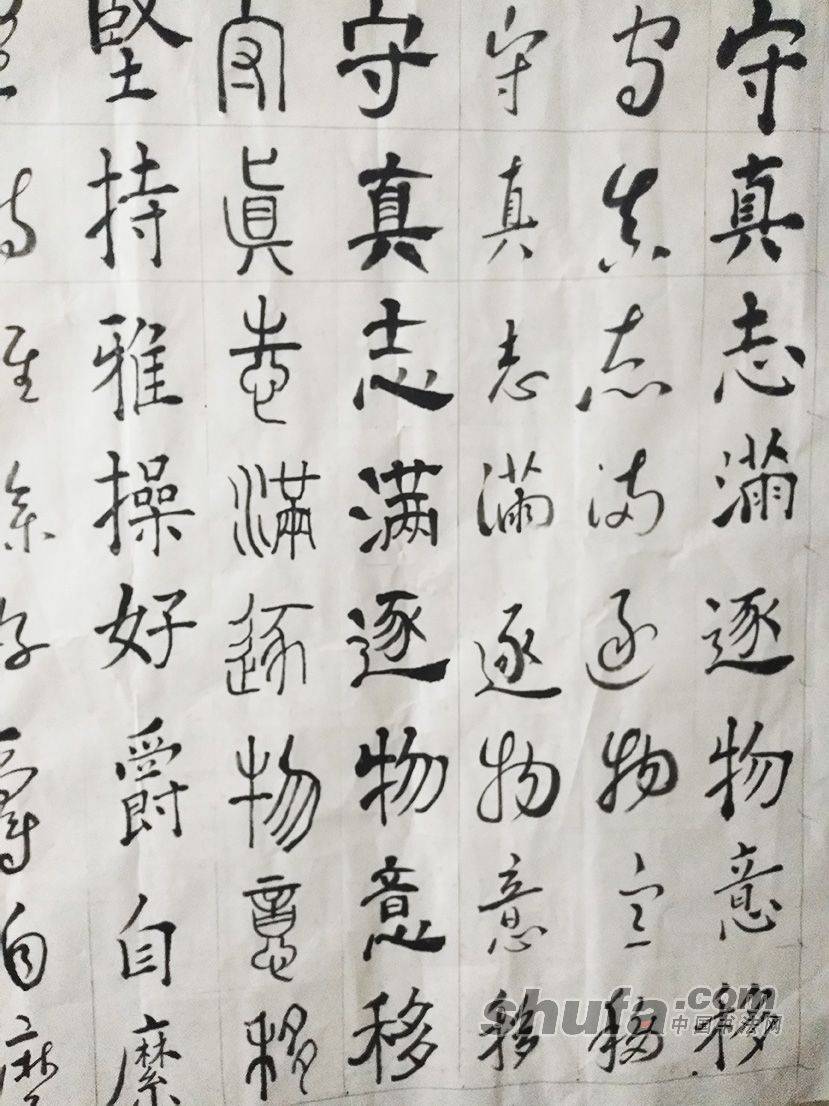 守真志滿逐物意移
守真志滿逐物意移
守真志滿逐物意移
守真志满逐物意移
守眞志滿逐物意移
堅持雅操好爵自縻
持雅操好爵自縻
shufa.com
中国书法网